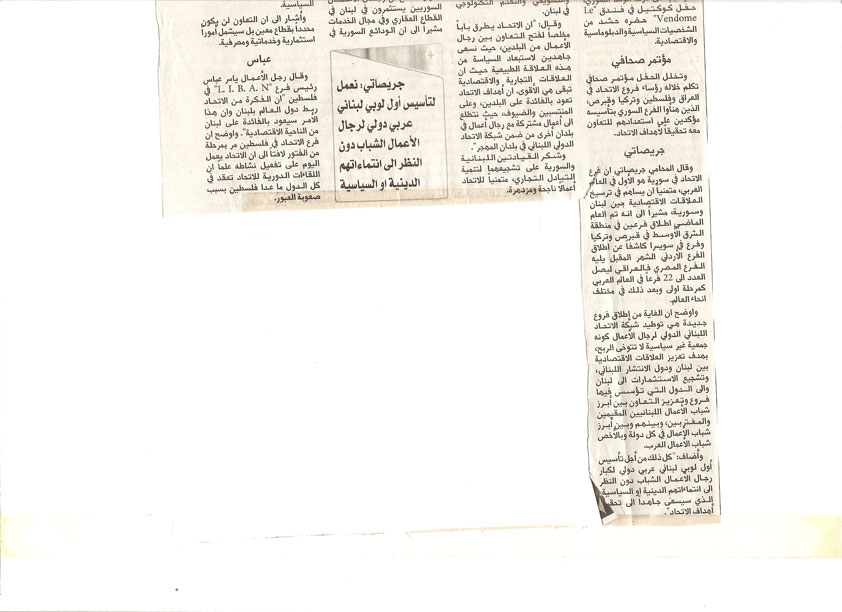 حفل كوكتيل في فندق "Le
Vendome" حضره حشد من
الشخصيات السياسية والدبلوماسية
والاقتصادية.
مؤتمر صحافي
وتخلل الحفل مؤتمر صحافي
تكلم خلاله رؤساء فروع الاتحاد في
العراق وفلسطين وتركيا وقبرص،
الذين هنأوا الفرع السوري بتأسيسه
مؤكدين على استعدادهم للتعاون
معه تحقيقاً لاهداف الاتحاد.
جريصاتي
وقال المحامي جريصاتي ان فرع
الاتحاد في سورية هو الاول في العالم
العربي، متمنياً ان يساهم في ترسيخ
العلاقات الاقتصادية جين لبنان
وسورية، مشيراً الى انه تم العام
الماضي اطلاق فرعين في منطقة
الشرق الأوسط في قبرص وتركيا
وفرع في سويسرا كاشفاً عن اطلاق
الفرع الأردني الشهر المقبل يليه
الفرع المصري فالعراقي ليصل
العدد الى 22 فرعاً في العالم العربي
كمرحلة اولى وبعد ذلك في مختلف
انحاء العالم.
واوضح ان الغاية من إطلاق فروع
جديدة هي توطيد شبكة الاتحاد
اللبناني الدولي لرجال الأعمال كونه
جمعية غير سياسية لا تتوخى الربح،
بهدف تعزيز العلاقات الاقتصادية
بين لبنان ودول الانتشار اللبناني،
وتشجيع الاستثمارات الى لبنان
والى الدول التي تؤسس فيها
فروع وتعزيز التعاون بين أبرز
شباب الأعمال اللبنانيين المقيمين
والمغتربين، وبينهم وبين أبرز
شباب الإعمال في كل دولة وبالأخص
شباب الأعمال العرب.
وأضاف: "كل ذلك من أجل تأسيس
أول لوبي لبناني عربي دولي لكبار
رجال الاعمال الشباب دون النظر
الى انتماءاتهم الدينية او السياسية،
الذي سيسعى جاهداً الى
أهداف الاتحاد".
والتسويقي والتقدم التكنولوجي
في لبنان.
وقال: "ان الاتحاد يطرق باباً
مخلصاً لفتح التعاون بين رجال
الاعمال من البلدين، حيث نسعى
جاهدين لاستبعاد السياسة من
هذه العلاقة الطبيعية حيث ان
العلاقات التجارية والاقتصادية
تبقى هي الأقوى. ان أهداف الاتحاد
تعود بالفائدة على البلدين، وعلى
المنتسبين والضيوف، حيث نتطلع
الى أعمال مشتركة مع رجال أعمال في
بلدان أخرى من ضمن شبكة الاتحاد
الدولي اللبناني في بلدان المهجر".
وشكر القيادتين اللبنانية
والسورية على تشجيعهما لتنمية
التبادل التجاري، متمنياً للاتحاد
أعمالا ناجحة ومزدهرة.
السوريين يستثمرون في لبنان في
القطاع العقاري وفي مجال الخدمات
مشيراً الى ان الودائع السورية في
جريصاتي: نعمل
لتأسيس أول لوبي لبناني
عربي دولي لرجال
الأعمال الشباب دون
النظر الى انتماءاتهم
الدينية او السياسية
السياسية.
وأشار الى ان التعاون لن يكون
محدداً بقطاع معين بل سيشمل أموراً
استثمارية وخدماتية ومصرفية.
عباس
وقال رجل الأعمال ياسر عباس
رئيس فرع "L. I. B. A. N" في
فلسطين "ان الفكرة من الاتحاد
ربط دول العالم بلبنان وان هذا
الامر سيعود بالفائدة على لبنان
من الناحية الاقتصادية". واوضح ان
فرع الاتحاد في فلسطين مر بمرحلة
من الفتور لافتا الى ان الاتحاد يعمل
اليوم على تفعيل نشاطه علماً ان
اللقاءات الدورية للاتحاد تعقد في
كل الدول ما عدا فلسطين بسبب
صعوبة العبور.